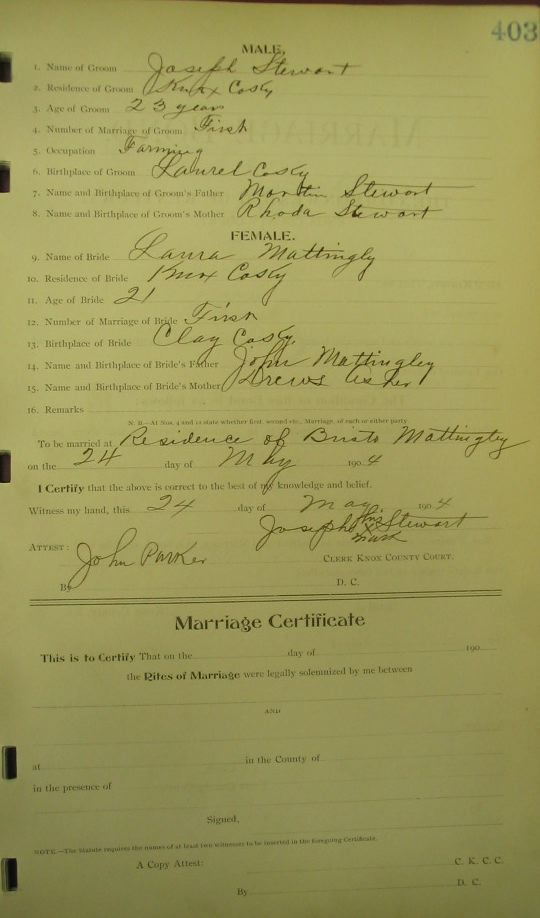 403
MALE,
1. Name of Groom Joseph Stewart
2. Residence of Groom Knox Costy
3. Age of Groom 23 years
4. Number of Marriage of Groom First
5. Occupation Farming
6. Birthplace of Groom Laurel Costy
7. Name and Birthplace of Groom's Father Martin Stewort
8. Name and Birthplace of Groom's Mother Rhoda Stewort
FEMALE.
9. Name of Bride Laura Mattingly
10. Residence of Bride Knox Costy
11. Age of Bride 21
12. Number of Marriage of Bride First
13. Birthplace of Bride Clay Costy.
14. Name and Birthplace of Bride's Father John Mattingley
15. Name and Birthplace of Bride's Mother
16. Remarks
N. B.—At Nos. 4 and 12 state whether first, second etc., Marriage, of each or either party
To be married at Residence of Mattingley
on the 24 day of May 1904
I Certify that the above is correct to the best of my knowledge and belief.
Witness my hand, this 24 day of May, 1904
Joseph his x mark Stewart
ATTEST:
John Parker
CLERK KNOX COUNTY COURT.
By D. C.
Marriage Certificate
This is to Certify That on the day of 190
the Rites of Marriage were legally solemnized by me between
AND
at in the County of
in the presence of
Signed,
NOTE.—The Statute requires the names of at least two witnesses to be inserted in the foregoing Certificate.
A Copy Attest: C. K. C. C.
By D. C.